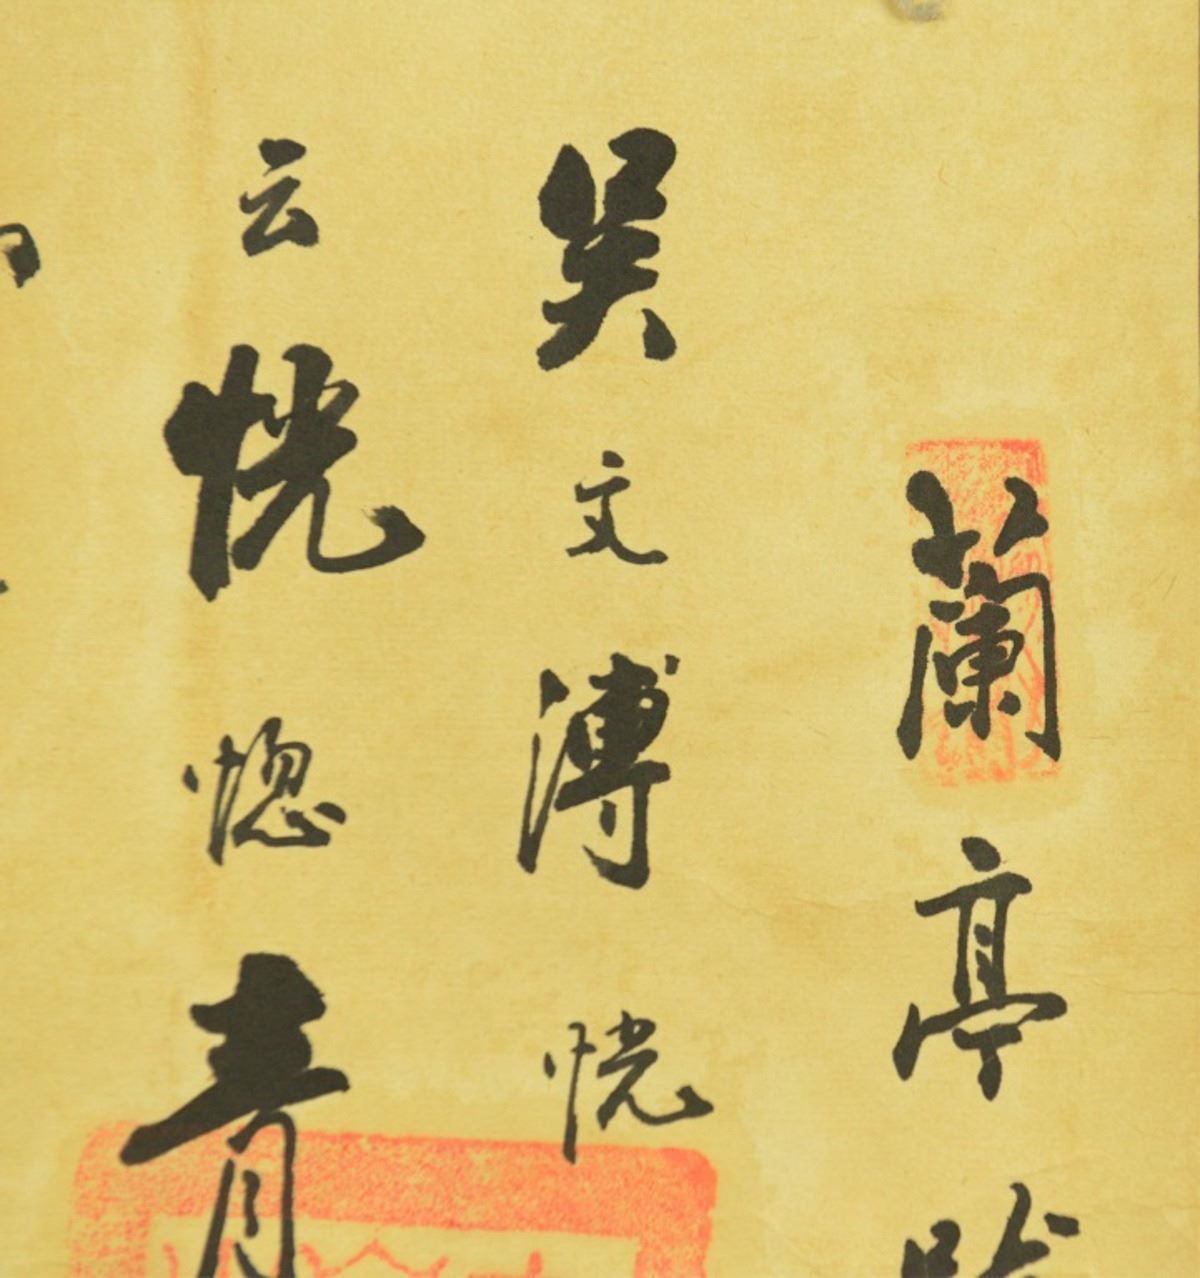 蘭亭
吴文溥恍
云恍惚青